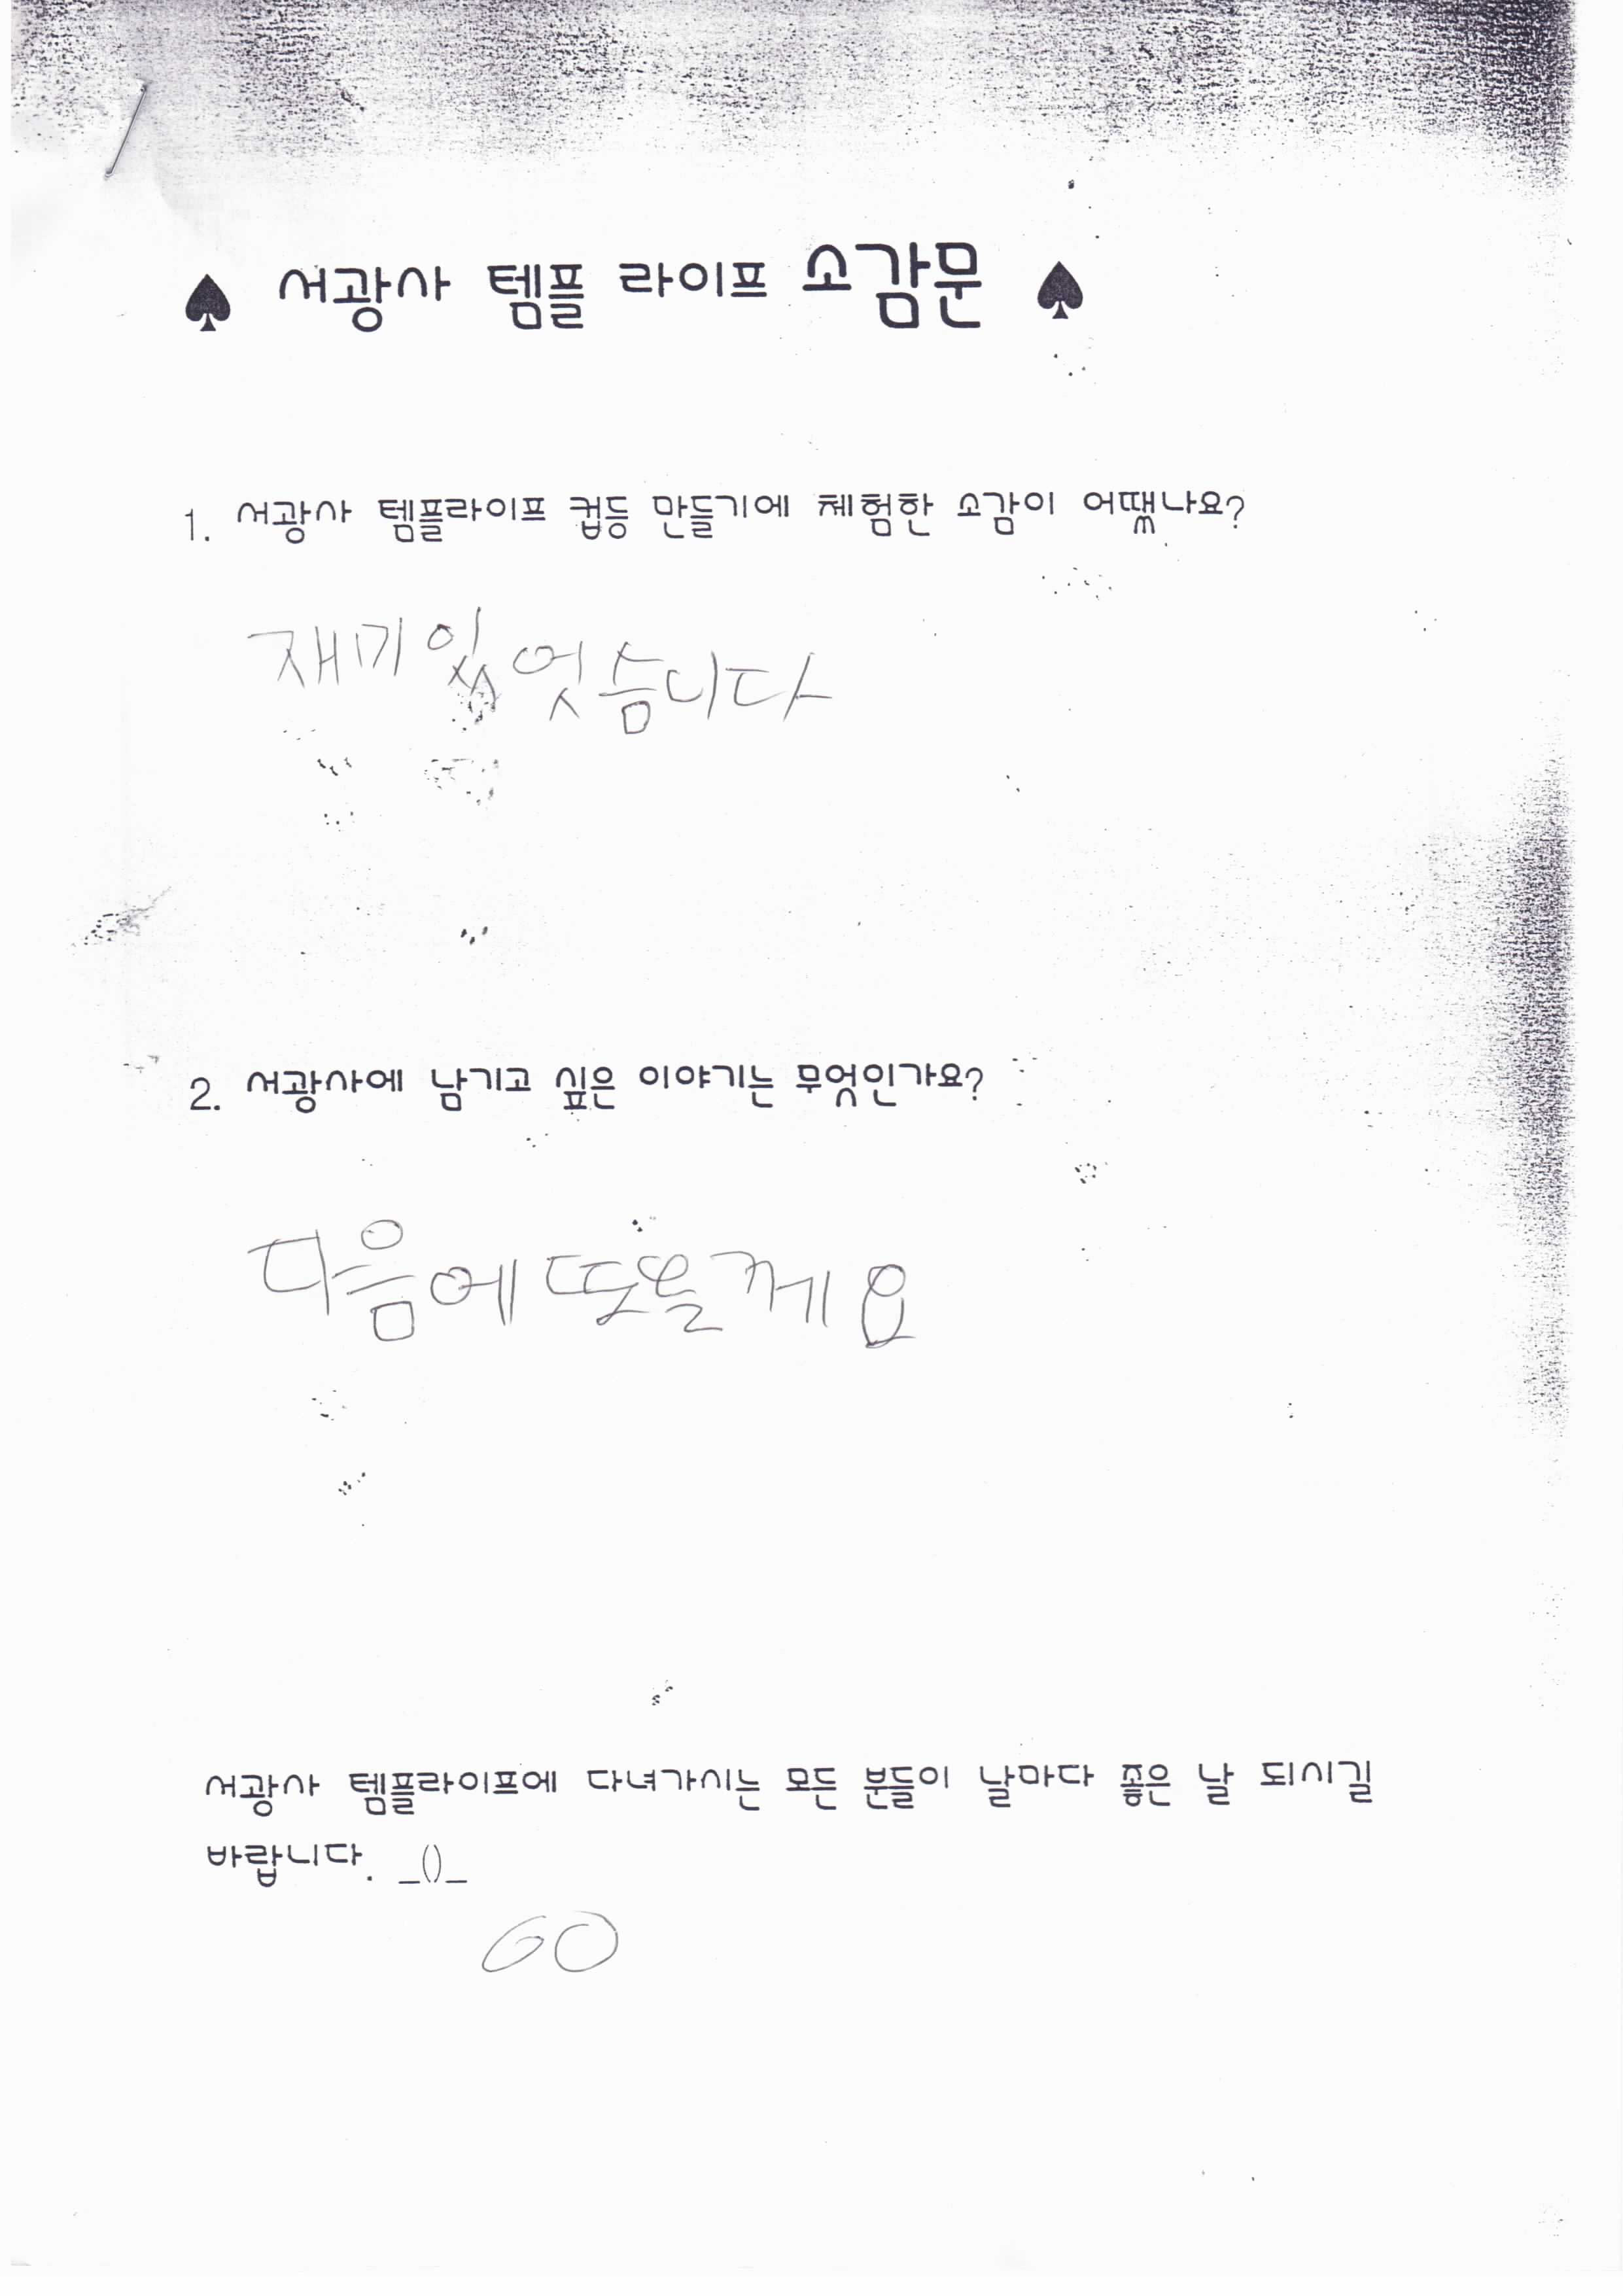 ♠ 서광사 템플 라이프 소감문 ♠
1. 서광사 템플라이프 컵등 만들기에 체험한 소감이 어땠나요?
재미있엇습니다
2. 서광사에 남기고 싶은 이야기는 무엇인가요?
다음에 또올께요
서광사 템플라이프에 다녀가시는 모든 분들이 날마다 좋은 날 되시길
바랍니다. _()_
GO